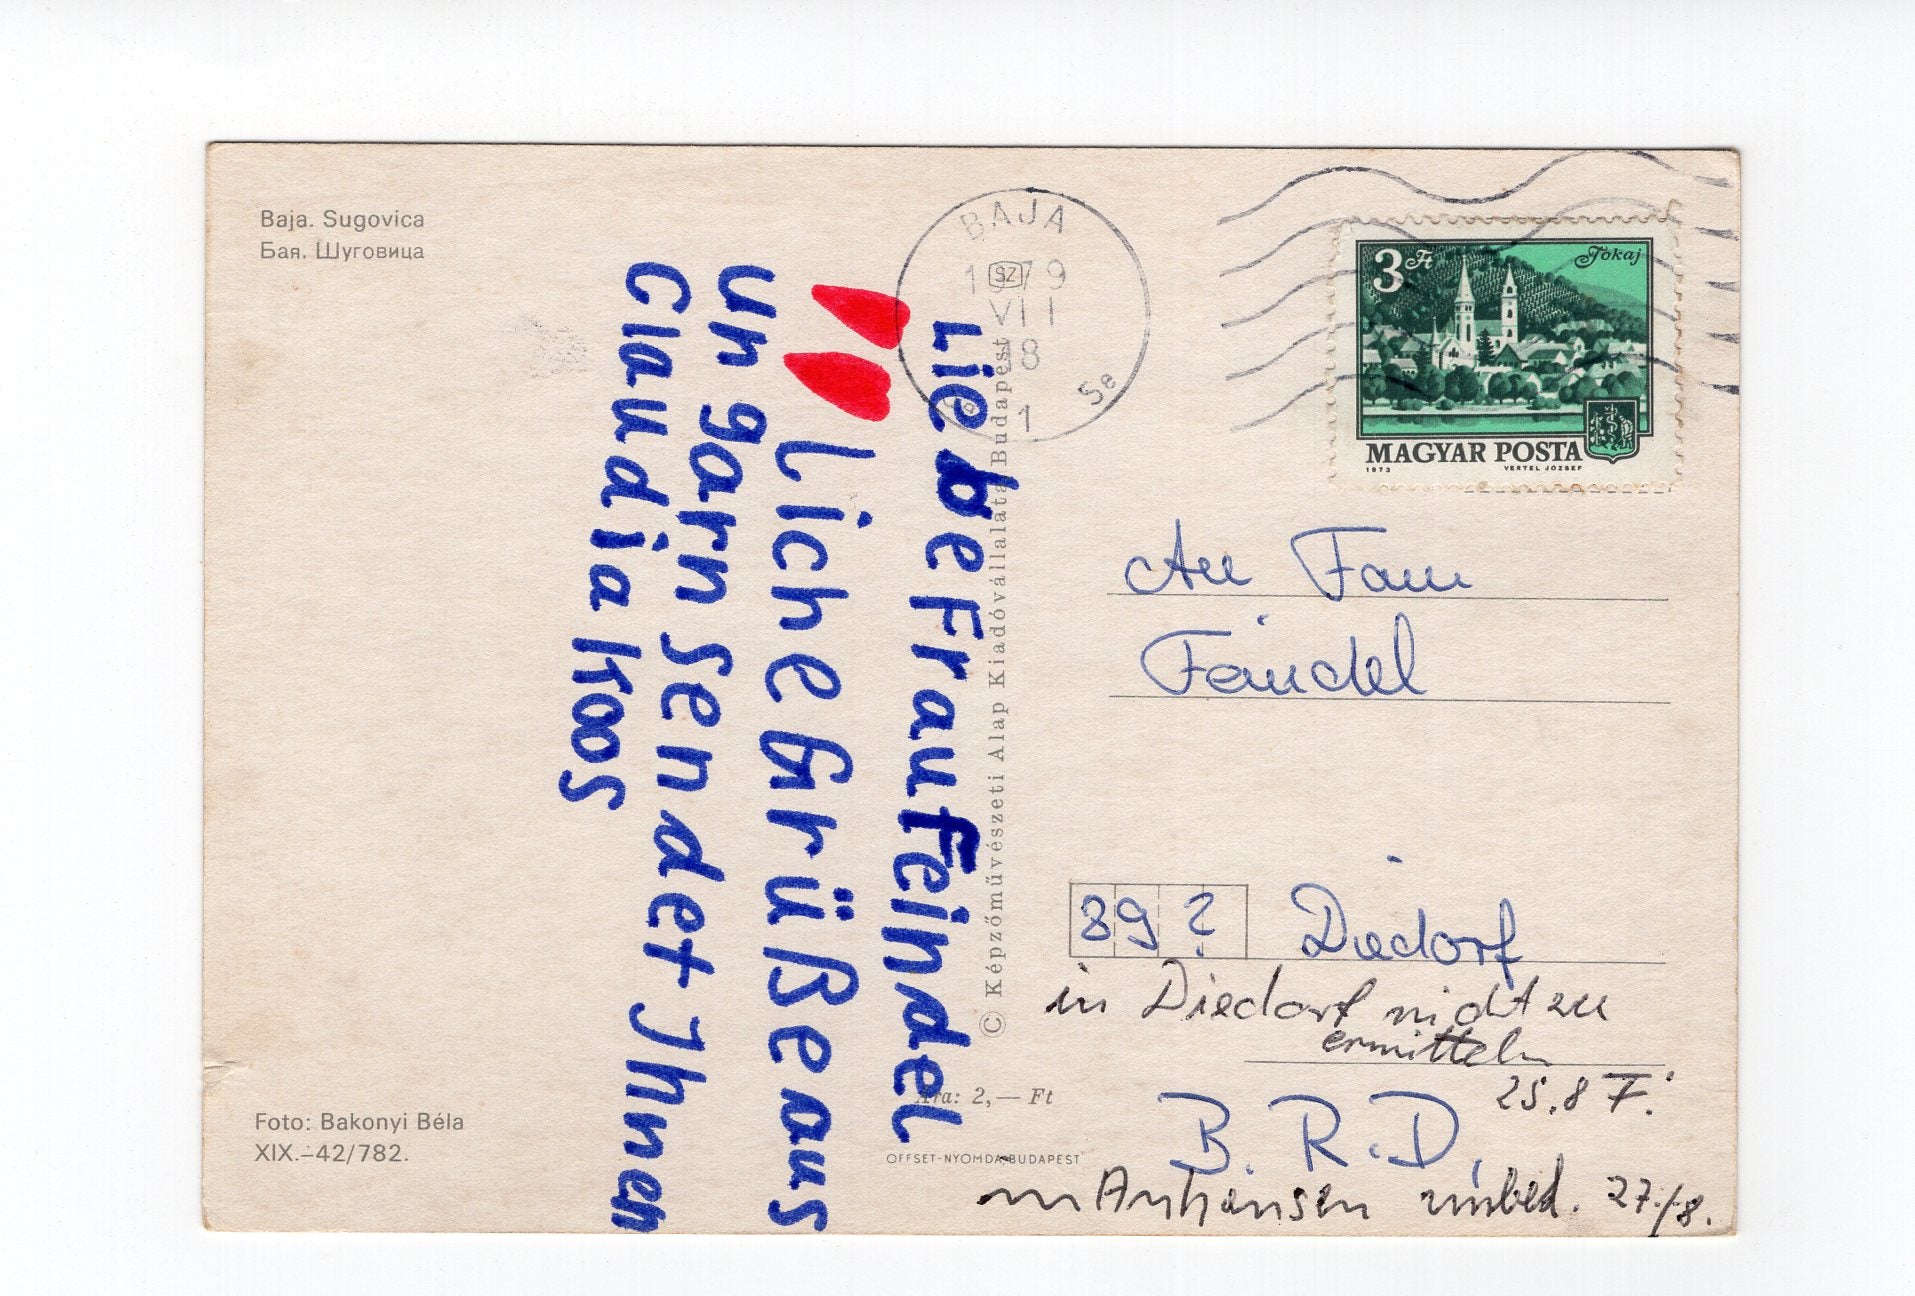 Baja. Sugovica
Бая. Шуговица
Liebe Frau Feindel
liche Grüße aus
Ungarn sendet Ihnen
Claudia Koos
Foto: Bakonyi Béla
XIX.–42/782.
© Képzőművészeti Alap Kiadóvállalata, Budapest
Ára: 2,— Ft
OFFSET-NYOMDA, BUDAPEST
BAJA
1979
SZ
VII
18
1
3 Ft
Tokaj
MAGYAR POSTA
1973 VERTEL JÓZSEF
An Fam
Feindel
89 ? Diedorf
in Diedorf nicht zu
ermitteln
25.8 F.
B. R. D.
in Anhausen unbek. 27./8.